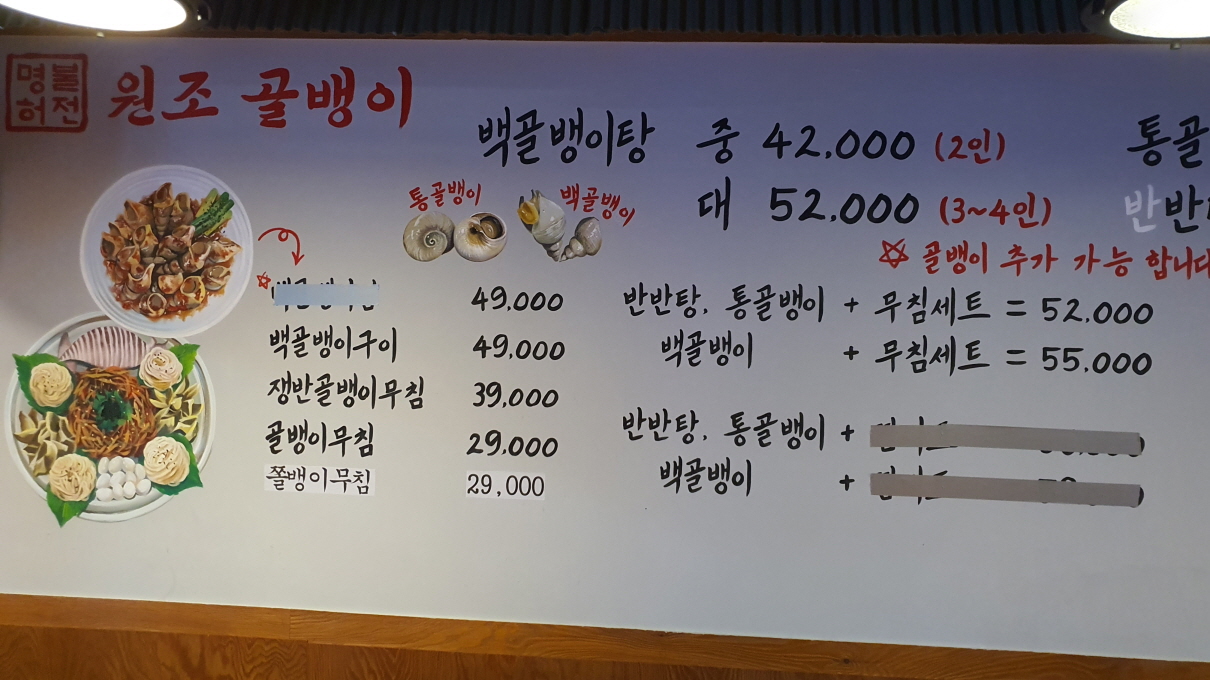 명불허전
원조 골뱅이
백골뱅이탕 중 42,000 (2인)
대 52,000 (3~4인)
통골
반반
골뱅이 추가 가능 합니다
통골뱅이
백골뱅이
49,000
백골뱅이구이 49,000
쟁반골뱅이무침 39,000
골뱅이무침 29,000
쫄뱅이무침 29,000
반반탕, 통골뱅이 + 무침세트 = 52,000
백골뱅이 + 무침세트 = 55,000
반반탕, 통골뱅이 +
백골뱅이 +